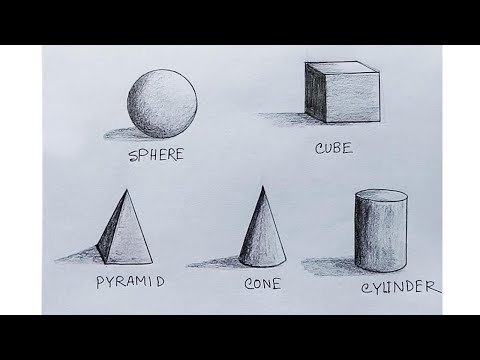 SPHERE
CUBE
PYRAMID
CONE
CYLINDER